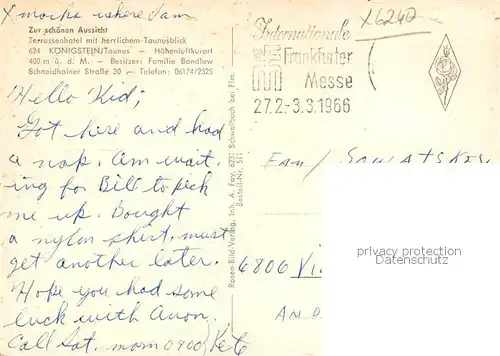 X marks where I am
Zur schönen Aussicht
Terrassenhotel mit herrlichem-Taunusblick
624 KONIGSTEIN/Taunus - Höhenluftkurort
400 m ü. d. M. - Besitzer: Familie Bandlow
Schneidhainer Straße 30 - Telefon: 06174/2525
Hello Kid;
Got here and had
a nap. Am wait-
ing for Bill to pick
me up. Bought
a nylon shirt, must
get another later.
Hope you had some
luck with Avon.
Call Sat. morn 0900
Rosen-Bild-Verlag, Inh. A. Fay, 6231 Schwalbach bei Ffm.
Bestell-Nr. 511
X6240
Internationale
Frankfurter
Messe
27.2.-3.3.1966
6806
privacy protection
Datenschutz